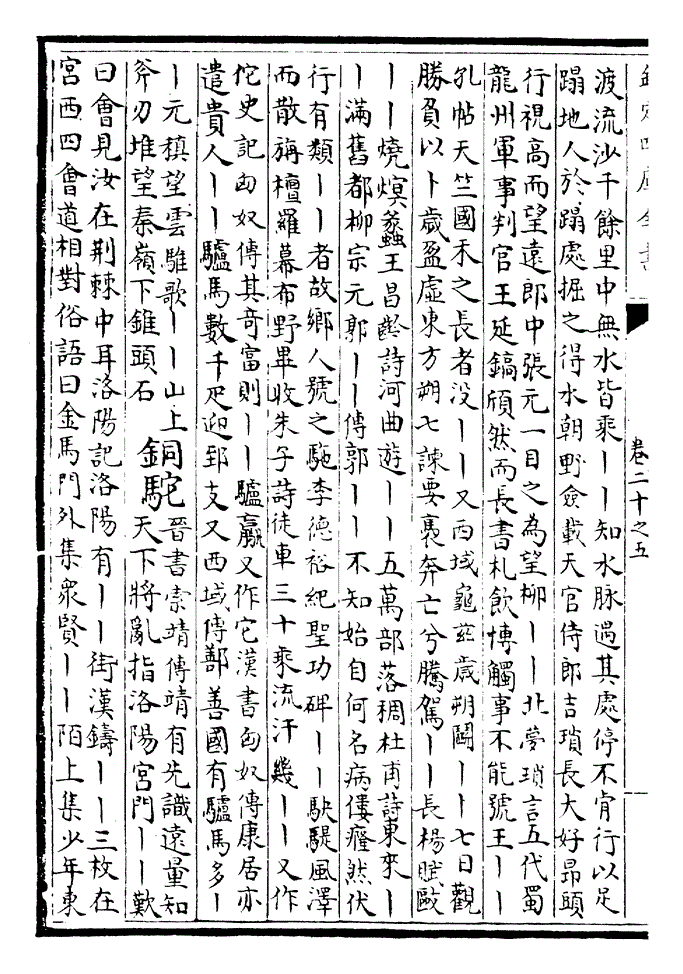 欽定四庫全書
卷二十之五
渡流沙千餘里中無水皆乘丨丨知水脉遇其處停不肯行以足
蹋地人於蹋處掘之得水朝野僉載天官侍郎吉瑣長大好昂頭
行視高而望遠郎中張元一目之為望柳丨丨北夢瑣言五代蜀
龍州軍事判官王延鎬頎然而長書札飲博觸事不能號王丨丨
孔帖天竺國禾之長者没丨丨又西域龜兹歲朔鬬丨丨七日觀
勝負以卜歲盈虛東方朔七諫要褭奔亡兮騰駕丨丨長楊賦敺
丨丨燒熐蠡王昌齡詩河曲遊丨丨五萬部落稠杜甫詩東來丨
丨滿舊都柳宗元郭丨丨傳郭丨丨不知始自何名病僂癃然伏
行有類丨丨者故鄉人號之駞李德裕紀聖功碑丨丨駃騠風澤
而散旃檀羅幕布野畢收朱子詩徒車三十乘流汗幾丨丨又作
佗史記匈奴傳其奇畜則丨丨驢驘又作它漢書匈奴傳康居亦
遣貴人丨丨驢馬數千疋迎郅支又西域傳鄯善國有驢馬多丨
丨元稹望雲騅歌丨丨山上
斧刃堆望秦嶺下錐頭石
銅駝
晉書索靖傳靖有先識遠量知
天下將亂指洛陽宮門丨丨歎
曰會見汝在荆棘中耳洛陽記洛陽有丨丨街漢鑄丨丨三枚在
宮西四會道相對俗語曰金馬門外集衆賢丨丨陌上集少年東